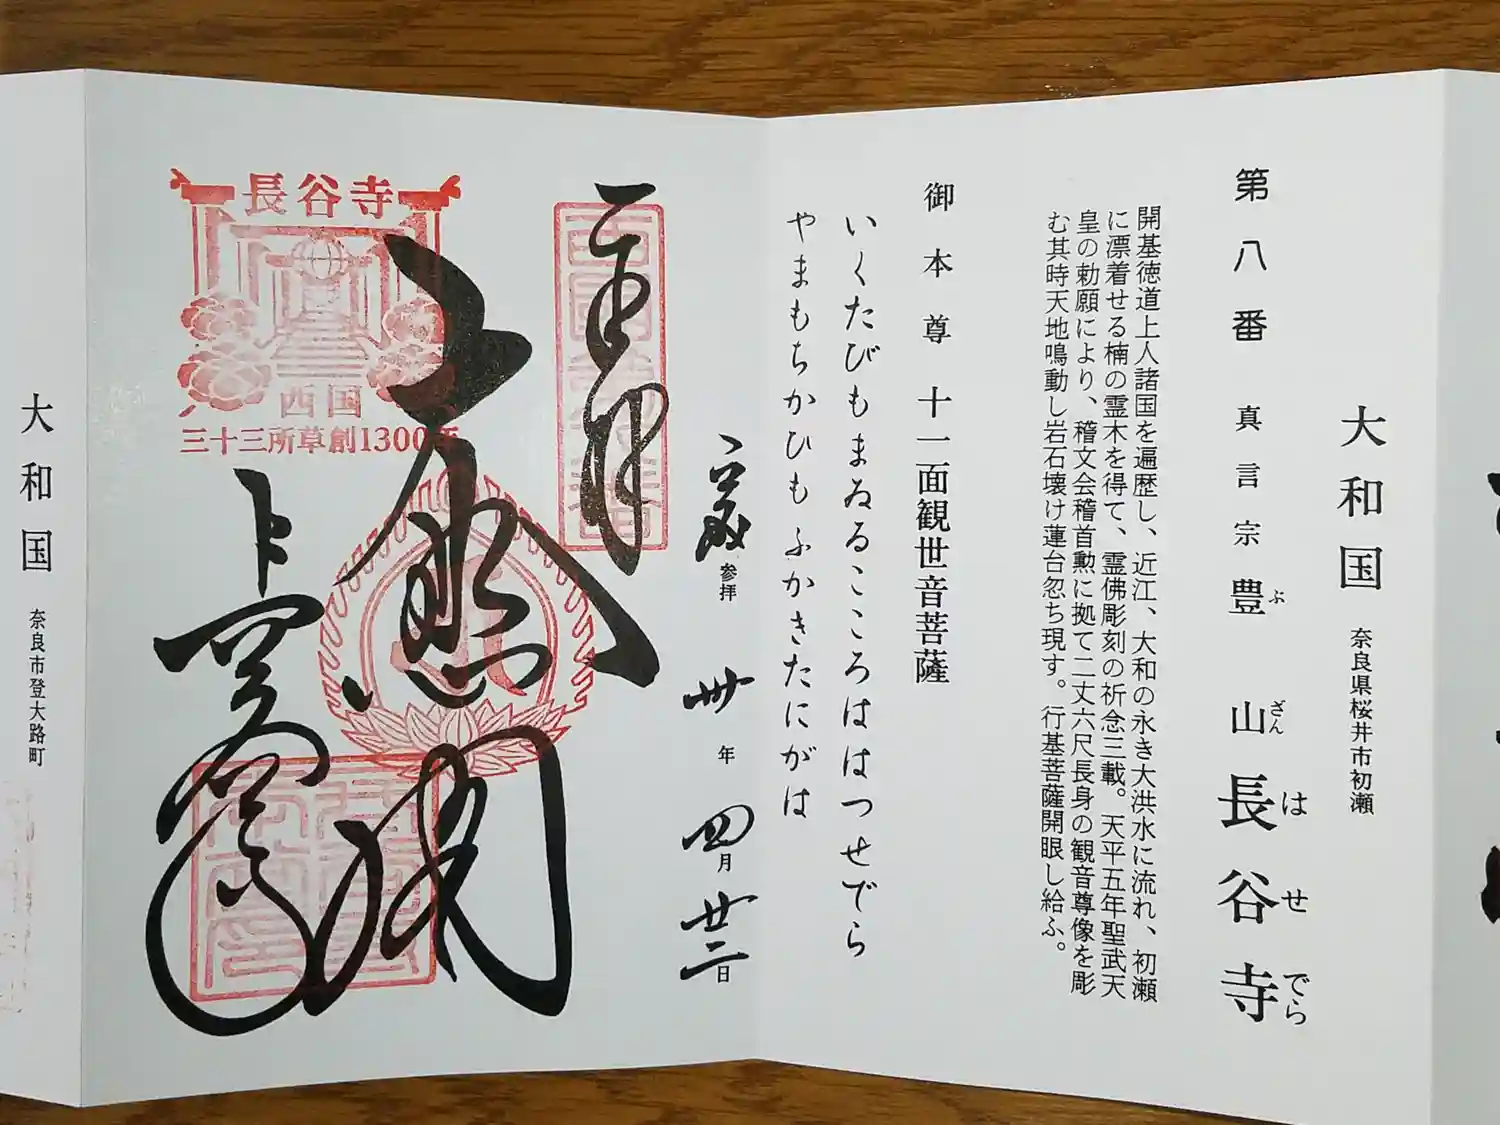 大和国 奈良県桜井市初瀬
第八番 真言宗豊山長谷寺
ぶ ざん は せ でら
開基徳道上人諸国を遍歴し、近江、大和の永き大洪水に流れ、初瀬
に漂着せる楠の霊木を得て、霊佛彫刻の祈念三載。天平五年聖武天
皇の勅願により、稽文会稽首勲に拠て二丈六尺長身の観音尊像を彫
む其時天地鳴動し岩石壊け蓮台忽ち現す。行基菩薩開眼し給ふ。
御本尊 十一面観世音菩薩
いくたびもまゐるこころははつせでら
やまもちかひもふかきたにがは
参拝 卅年 四月廿二日
奉拝
長谷寺
西国
三十三所草創1300年
大和国 奈良市登大路町